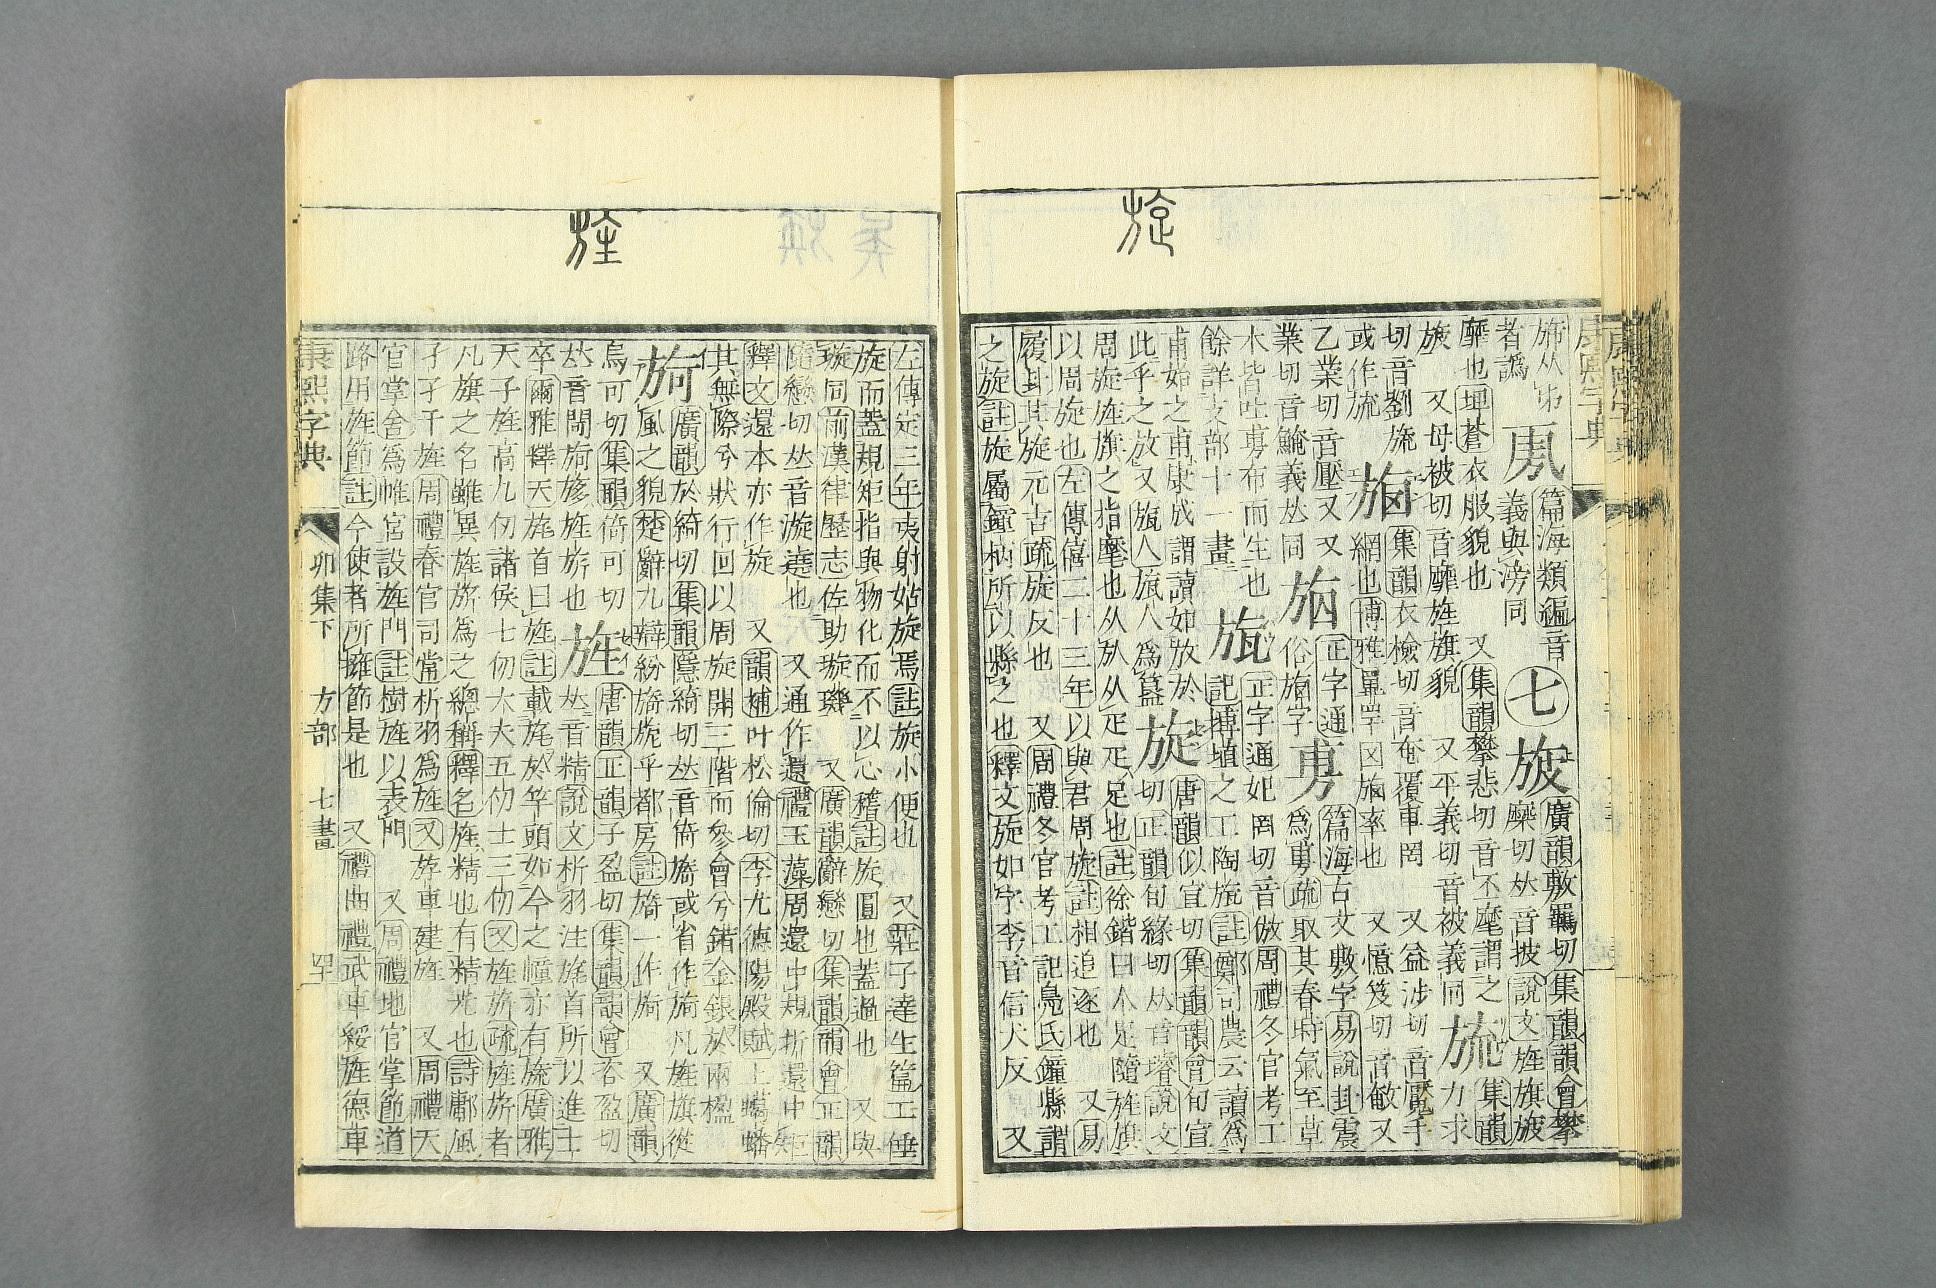 旋
康熙字典
旆从巿
者譌
𭤨
篇海類編音
義與滂同
七
旇
廣韻敷羈切集韻韻會攀
糜切𠀤音披說文旌旗旇
靡也埤蒼衣服貌也 又集韻攀悲切音丕麾謂之
旇 又母被切音靡旌旗貌 又平義切音被義同
旈
集韻力求
切音劉旒
或作旒
集韻衣檢切音奄覆車罔 又益涉切音魘手
網也博雅罩罕𦉰率也 又憶笈切音敏又
乙業切音壓又又
業切音䱤義𠀤同
正字通
俗旃字
篇海古文敷字易說卦震
爲旉疏取其春時氣至草
木皆吐旉布而生也
餘詳攴部十一畫
旊
正字通妃罔切音倣周禮冬官考工
記摶埴之工陶旊註鄭司農云讀爲
甫始之甫康成謂讀如放於
此乎之放又旊人旅人爲簋
旋
唐韻似宣切集韻韻會旬宣
切正韻旬緣切𠀤音璿說文
周旋旌旗之指麾也从㫃从疋疋足也註徐鍇曰人足隨旌旗
以周旋也左傳僖二十三年以與君周旋註相追逐也 又易
履卦其旋元吉疏旋反也 又周禮冬官考工記鳧氏鐘縣謂
之旋註旋屬鐘柄所以縣之也釋文旋如字李音信犬反 又
旌
左傳定三年夷射姑旋焉註旋小便也 又莊子達生篇工倕
旋而蓋規矩指與物化而不以心稽註旋圓也蓋過也 又與
璇同前漢律歷志佐助璇璣 又廣韻辭戀切集韻韻會正韻
隨戀切𠀤音漩遶也 又通作還禮玉藻周還中規折還中矩
釋文還本亦作旋 又韻補叶松倫切李尤德陽殿賦上蟠蟠
其無際兮狀行回以周旋開三階而參會兮錯金銀於兩楹
旑
廣韻於綺切集韻隱綺切𠀤音倚旖或省作旑凡旌旗從
風之貌楚辭九辯紛旖旎乎都房註旖一作旑 又廣韻
烏可切集韻倚可切
𠀤音閜旑旇旌旂也
旌
唐韻正韻子盈切集韻韻會咨盈切
𠀤音精說文析羽注旄首所以進士
卒爾雅釋天旄首曰旌註載旄於竿頭如今之幢亦有旒廣雅
天子旌高九仞諸侯七仞大夫五仞士三仞又旌旂疏旌旂者
凡旗之名雖異旌旂爲之總稱釋名旌精也有精光也詩鄘風
孑孑干旌周禮春官司常析羽爲旌又斿車建旌 又周禮天
官掌舍爲帷宮設旌門註樹旌以表門 又周禮地官掌節道
路用旌節註今使者所擁節是也 又禮曲禮武車綏旌德車
康熙字典 卯集下 方部 七畫 四